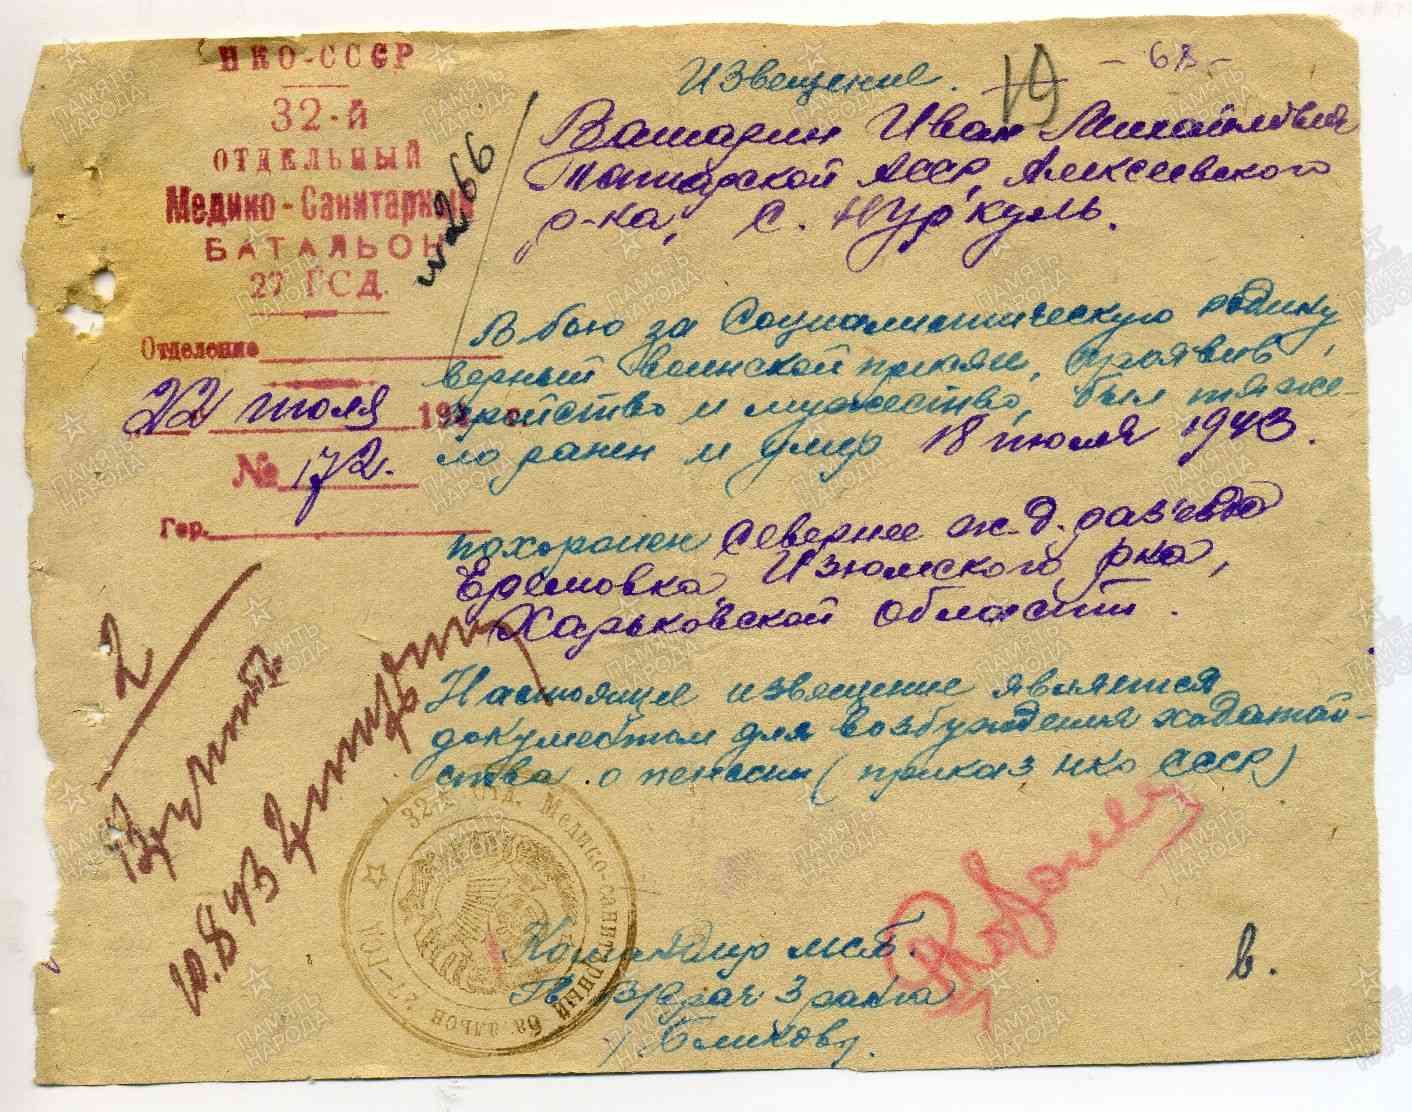 НКО-СССР
32-й
ОТДЕЛЬНЫЙ
Медико-Санитарный
БАТАЛЬОН
27 ГСД.
Отделение
22 июля 194 г.
№ 172.
Гор.
№ 266
19 - 68 -
Извещение.
Ватарин Иван Михайлович
Татарской АССР, Алексеевского
р-на, с. Нур'куль.
В бою за Социалистическую родину,
верный воинской присяги, проявив
геройство и мужество, был тяже-
ло ранен и умер 18 июля 1943.
похоронен Севернее ж.д. раз'езда
Еремовка, Изюмского р-на,
Харьковской области.
Настоящее извещение является
документом для возбуждения ходатай-
ства о пенсии (приказ НКО СССР)
2
10.8.43
32-й Отд. Медико-санитарный батальон 27-ГСД
Командир мсб.
Гв. в/врач 3 ранга
в.
ПАМЯТЬ НАРОДА